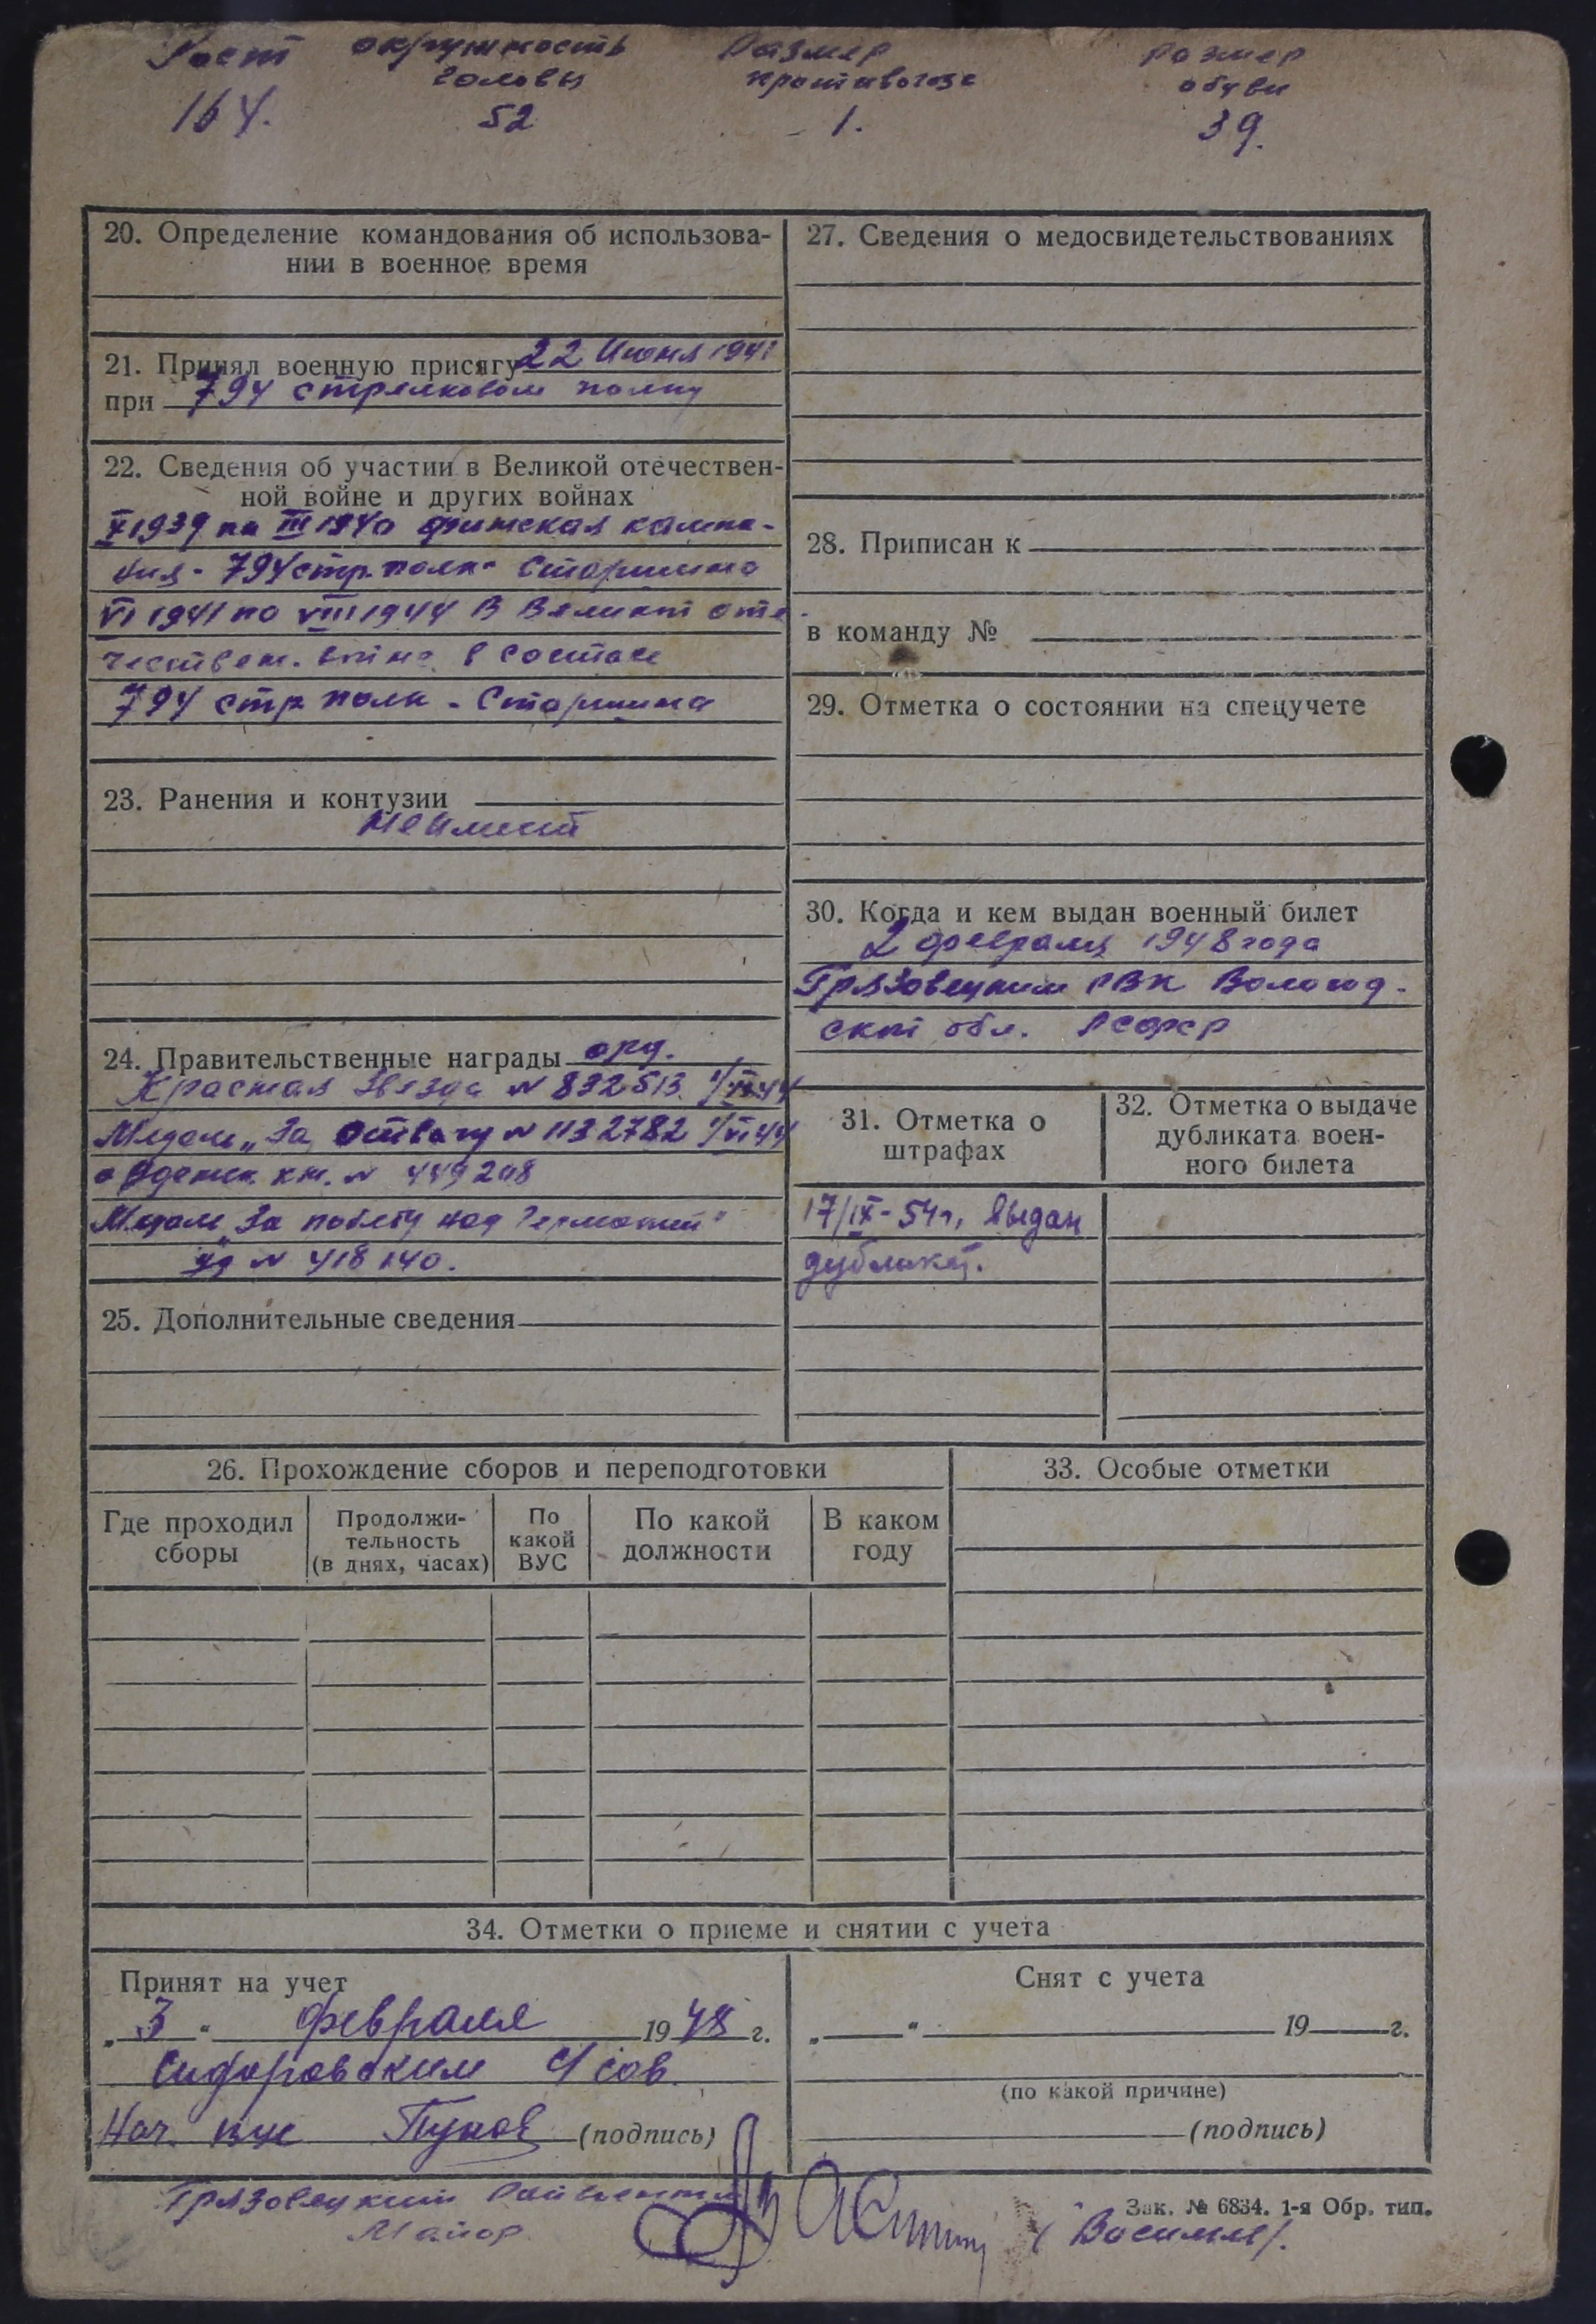 Рост окружность Размер размер
головы противогаза обуви
164. 52 1. 39.
20. Определение командования об использова-
нии в военное время
21. Принял военную присягу 22 Июня 1941
при 794 стрелковом полку
22. Сведения об участии в Великой отечествен-
ной войне и других войнах
X 1939 по III 1940 финская кампа-
ния - 794 стр. полк - Старшина
VI 1941 по VIII 1944 В Великой оте-
честв ен. войне в составе
794 стр полк - Старшина
23. Ранения и контузии
Не имеет
24. Правительственные награды орд.
Красная Звезда № 832513
Медаль „За Отвагу № 1132782 1/VI 44
орденск. кн. № 449208
Медаль „За победу над Германией"
уд № 418140.
25. Дополнительные сведения
27. Сведения о медосвидетельствованиях
28. Приписан к
в команду №
29. Отметка о состоянии на спецучете
30. Когда и кем выдан военный билет
2 февраля 1948 года
Грязовецким РВК Вологод-
ской обл. РСФСР
31. Отметка о
штрафах
17/IX-54г. выдан
дубликат.
32. Отметка о выдаче
дубликата воен-
ного билета
26. Прохождение сборов и переподготовки
Где проходил
сборы
Продолжи-
тельность
(в днях, часах)
По
какой
ВУС
По какой
должности
В каком
году
33. Особые отметки
34. Отметки о приеме и снятии с учета
Принят на учет
„ 3 " февраля 1948 г.
Сидоровским с/сов.
Нач. ВУС (подпись)
Снят с учета
„ " 19 г.
(по какой причине)
(подпись)
Грязовецкий Райвоенком
Майор
Зак. № 6834. 1-я Обр. тип.